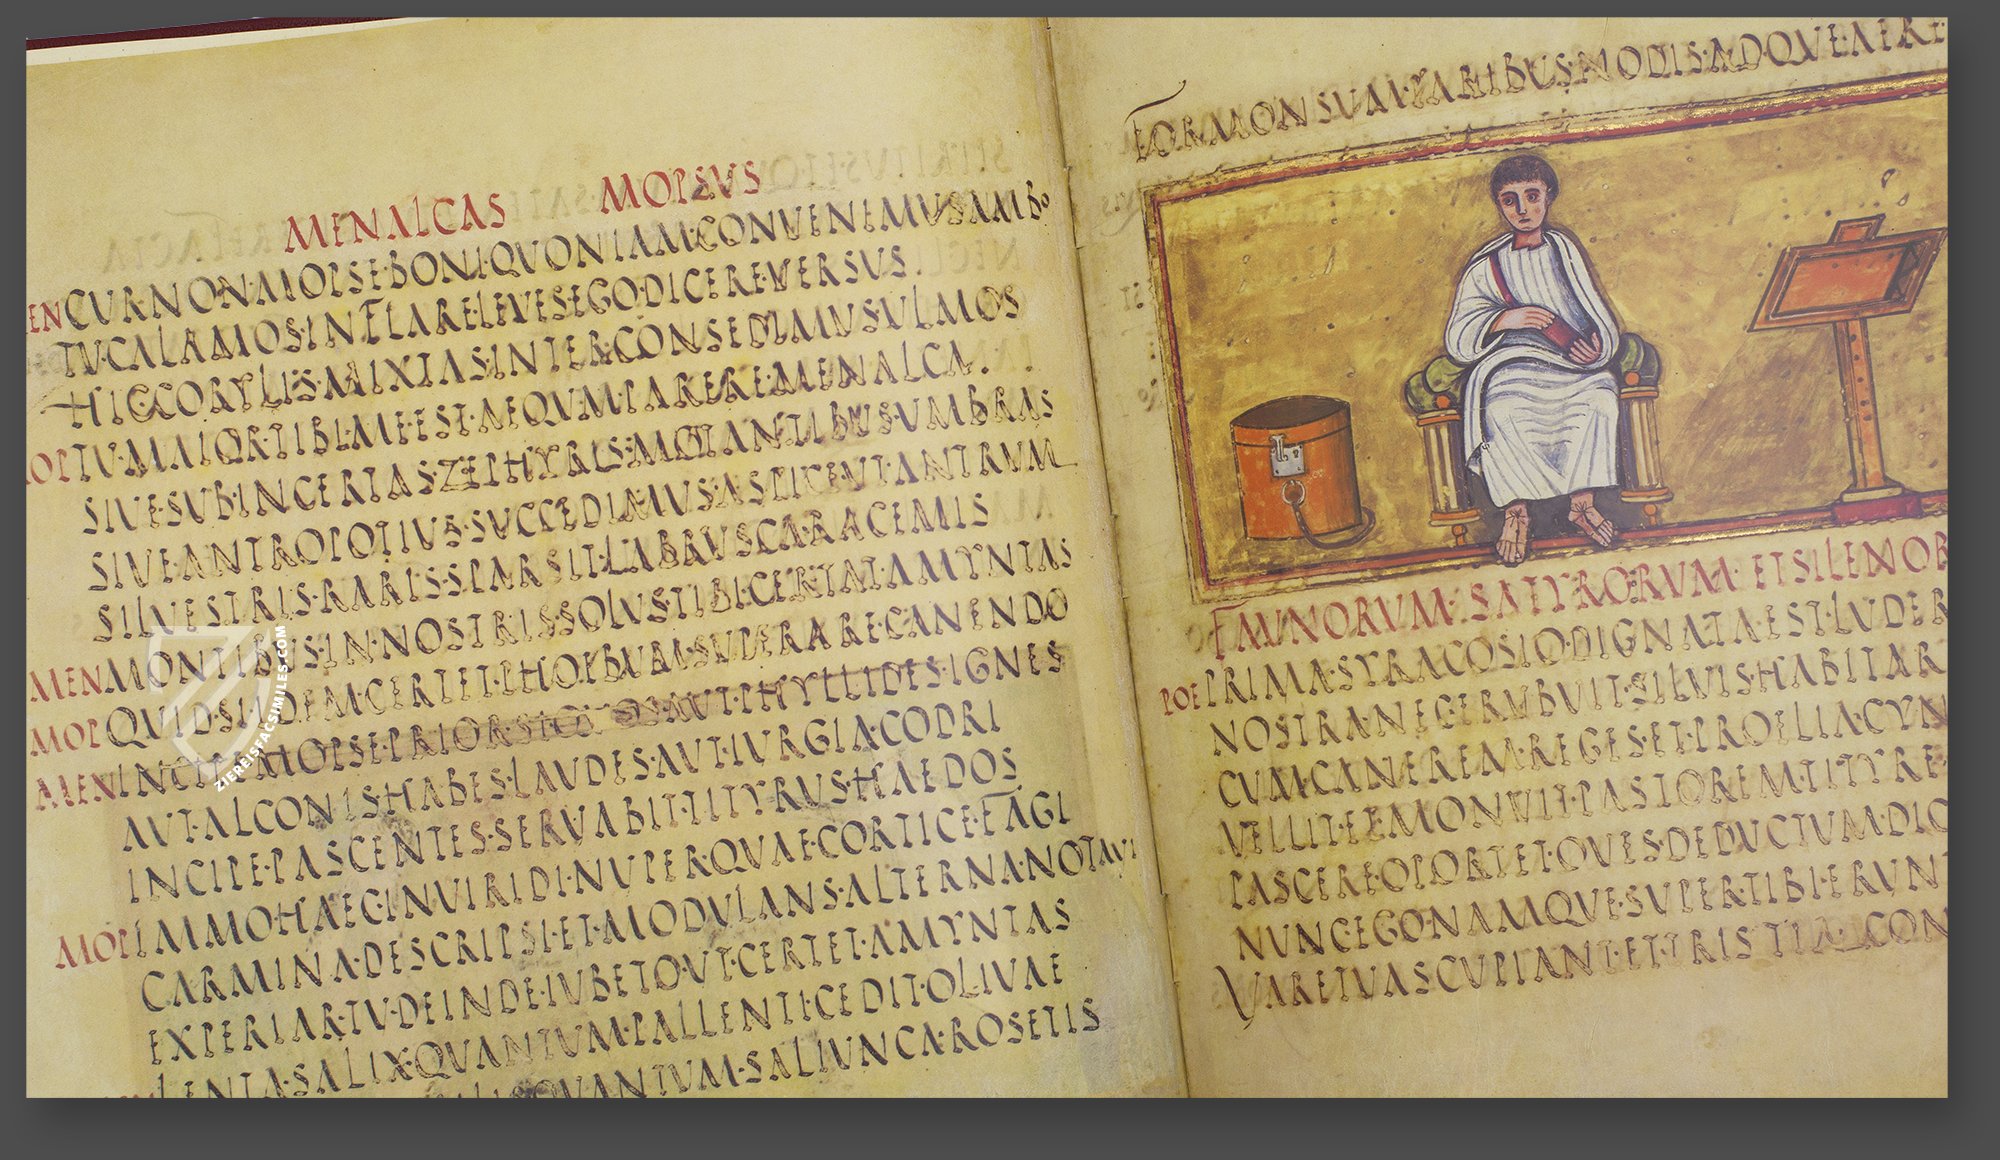 MENALCAS MOPSUS
MEN CVR·NON·MOPSE·BONI·QVONIAM·CONVENIMVS·AMBO
TV·CALAMOS·INFLARE·LEVES·EGO·DICERE·VERSVS.
HIC·CORYLIS·MIXTAS·INTER·CONSEDIMVS·VLMOS
MOP TV·MAIOR·TIBI·ME·EST·AEQVM·PARERE·MENALCA.
SIVE·SVB·INCERTAS·ZEPHYRIS·MOTANTIBVS·VMBRAS
SIVE·ANTRO·POTIVS·SVCCEDIMVS·ASPICE·VT·ANTRVM
SILVESTRIS·RARIS·SPARSIT·LABRVSCA·RACEMIS
MEN MONTIBVS·IN·NOSTRIS·SOLVS·TIBI·CERTAT·AMYNTAS
MOP QVID·SI·IDEM·CERTET·PHOEBVM·SVPERARE·CANENDO
MEN INCIPE·MOPSE·PRIOR·SI QVOS·AVT·PHYLLIDES·IGNES
AVT·ALCONIS·HABES·LAVDES·AVT·IVRGIA·CODRI
INCIPE·PASCENTES·SERVABIT·TITYRVS·HAEDOS
MOP IMMO·HAEC·IN·VIRIDI·NVPER·QVAE·CORTICE·FAGI
CARMINA·DESCRIPSI·ET·MODVLANS·ALTERNA·NOTAVI
EXPERIAR·TV·DEINDE·IVBETO·VT·CERTET·AMYNTAS
LENTA·SALIX·QVANTVM·PALLENTI·CEDIT·OLIVAE
QVANTVM·SALIVNCA·ROSETIS
FORMONSVM·PARIBVS·NODIS·ADQVE·AERE
FAVNORVM·SATYRORVM·ET SILENOR
POE PRIMA·SYRACOSIO·DIGNATA·EST·LVDER
NOSTRA·NEC·ERVBVIT·SILVIS·HABITAR
CVM·CANEREM·REGES·ET·PROELIA·CYN
VELLIT·ET·MONVIT·PASTOREM·TITYRE·
PASCERE·OPORTET·OVES·DEDVCTVM·DIC
NVNC·EGO·NAMQVE·SVPER·TIBI·ERVN
VARE·TVAS·CVPIANT·ET·TRISTIA·CON
ZIEREISFACSIMILES.COM